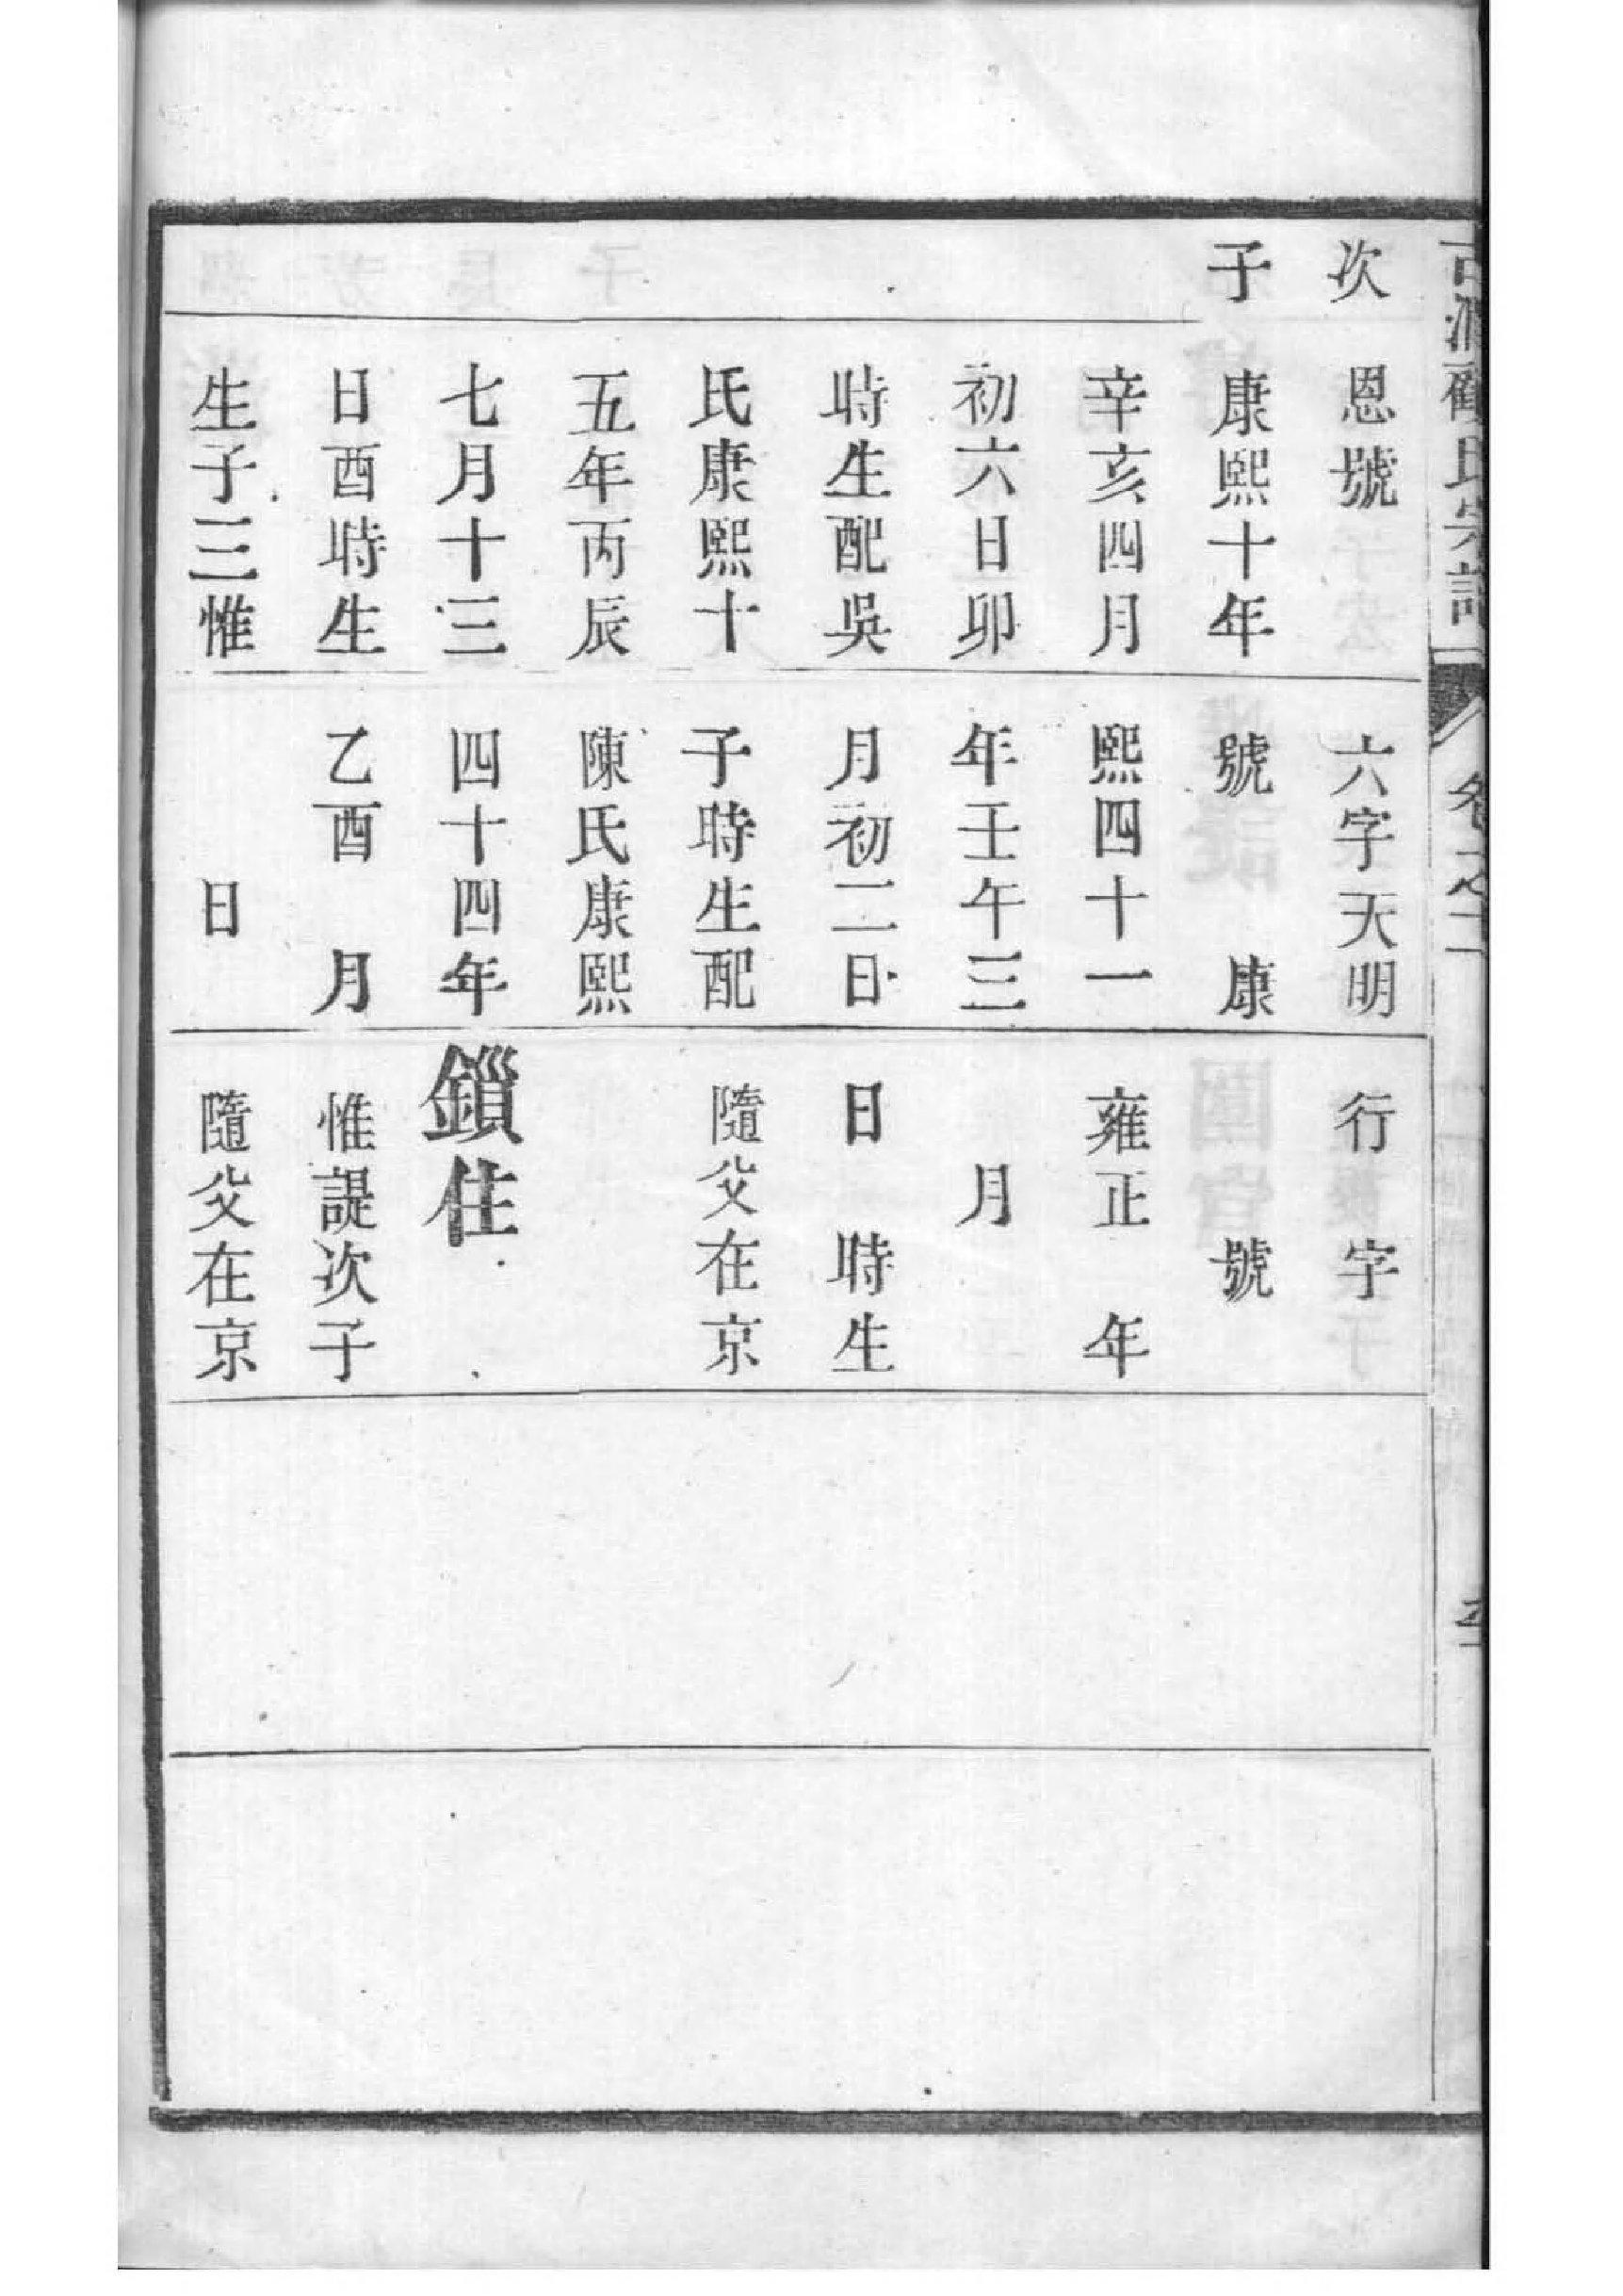 次
子
恩號
康熙十年
辛亥四月
初六日卯
時生配吳
氏康熙十
五年丙辰
七月十三
日酉時生
生子三惟
六字天明
號 康
熙四十一
年壬午三
月初二日
子時生配
陳氏康熙
四十四年
乙酉 月
日
行 字
號
雍正 年
月
日 時生
隨父在京
鎖住
惟諟次子
隨父在京